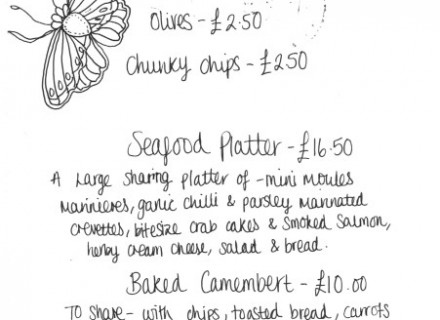 Olives - £2.50
Chunky chips - £2.50
Seafood Platter - £16.50
A large sharing platter of - mini moules
marinieres, garlic chilli & parsley marinated
crevettes, bitesize crab cakes & smoked salmon,
herby cream cheese, salad & bread.
Baked Camembert - £10.00
To share - with chips, toasted bread, carrots